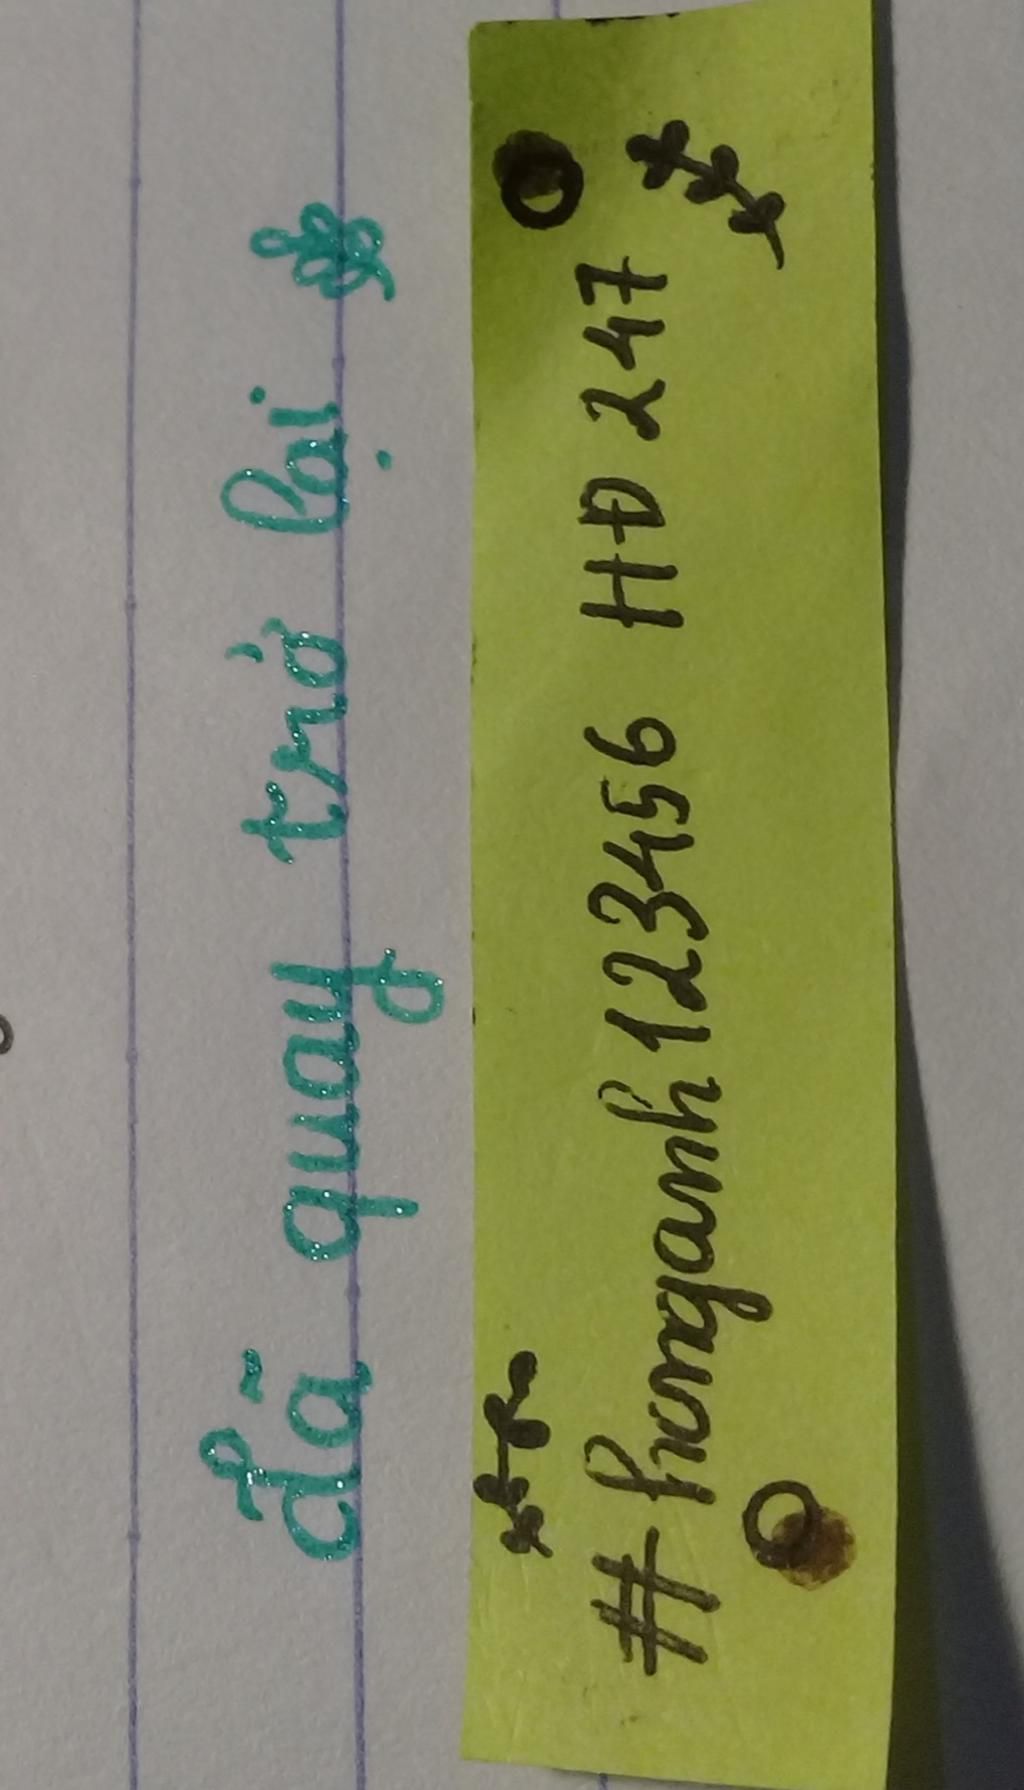 đã quay trở lại
#huonganh123456 HĐ 247